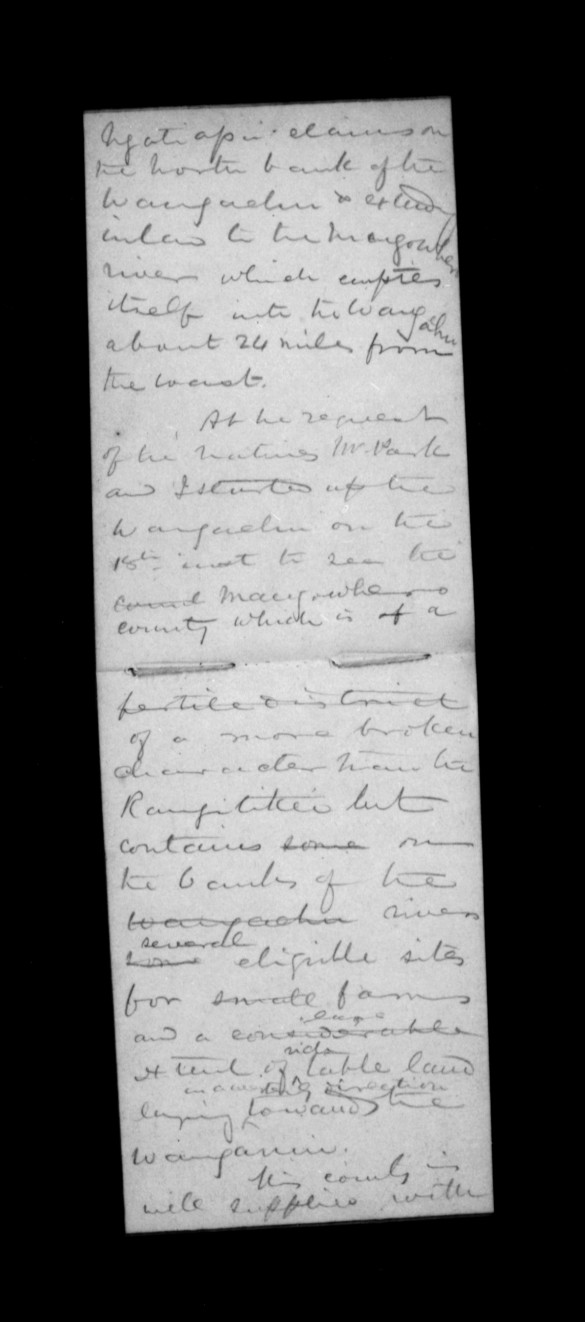 Ngatiapa claims on
the North bank of the
Wangaehu & extends
inland to the Mangowhero
river which empties
itself into the Wangaehu
about 24 miles from
the coast.
At the request
of the natives Mr. Park
and I started up the
Wangaehu on the
15th inst to see the
Mangowhero
country which is of a
fertile district
of a more broken
character than the
Rangitikei but
contains some on
the banks of the
Wangaehu rivers
several
some eligible sites
for small farms
large
and a considerable
extent of table land
direction
laying towards the
Wanganui.
This country is
well supplied with